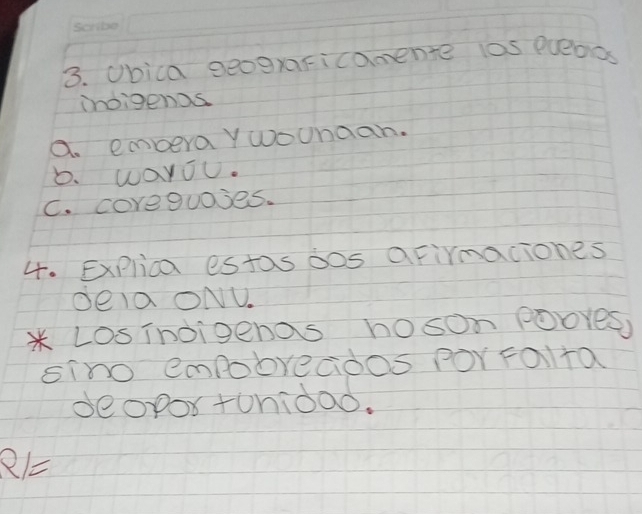 Scribe
3. Ubica geograficamente los pueblos
indigenas
a. embera y wounaan.
b. wayúu.
c. coreguajes.
4. Explica estas dos afirmaciones
de la ONU.
* Los indigenas no son pobres,
sino empobrecidos por falta
de oportunidad.
R/=